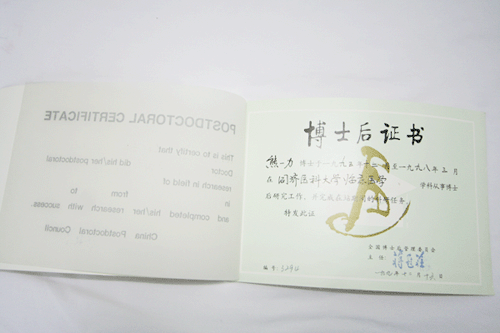 POSTDOCTORAL CERTIFICATE
This is to certify that
Doctor did his/her postdoctoral
research in field of
in from to
and completed his/her research with success.
China Postdoctoral Council
博士后证书
熊一力 博士于一九九五年十二月至一九九八年三月
在 同济医科大学 临床医学 学科从事博士
后研究工作，并完成在站期间的科研任务。
特发此证
全国博士后管理委员会
主任：
编号：